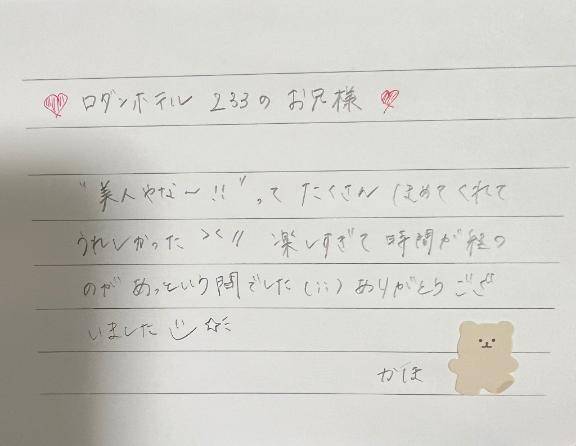 ♡ ロダンホテル 233の お兄様 ♡
"美人やな〜!!" って たくさん ほめてくれて
うれしかった ><!! 楽しすぎて 時間が経つ
のが あっという間でした (;;) ありがとうござ
いました ☺ ☆彡
かほ